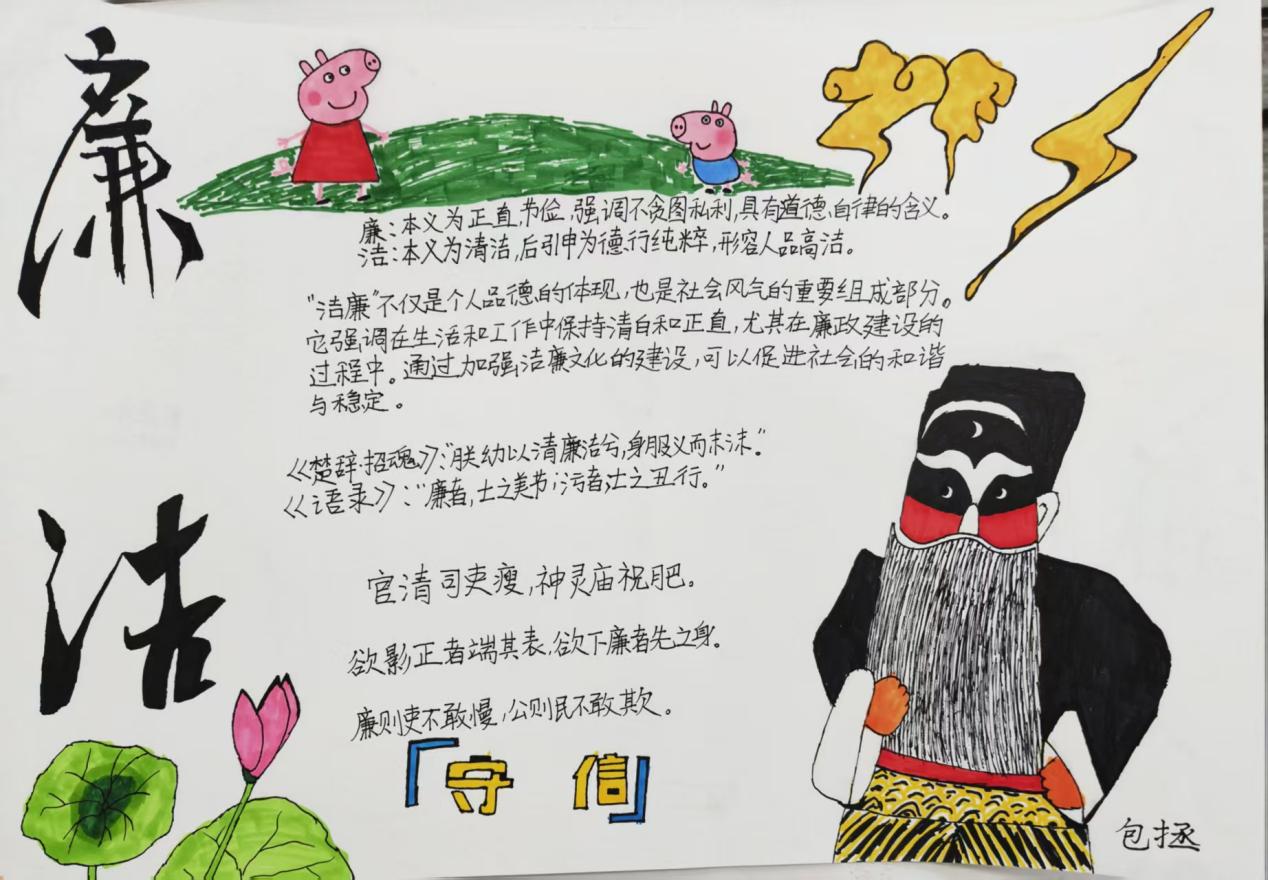 廉
洁
廉:本义为正直、节俭,强调不贪图私利,具有道德、自律的含义。
洁:本义为清洁,后引申为德行纯粹,形容人品高洁。
"洁廉"不仅是个人品德的体现,也是社会风气的重要组成部分。
它强调在生活和工作中保持清白和正直,尤其在廉政建设的
过程中。通过加强洁廉文化的建设,可以促进社会的和谐
与稳定。
《楚辞·招魂》:"朕幼以清廉洁兮,身服义而未沫。"
《语录》:"廉者,士之美节;污者,士之丑行。"
官清司吏瘦,神灵庙祝肥。
欲影正者端其表,欲下廉者先之身。
廉则吏不敢慢,公则民不敢欺。
「守 信」
包拯